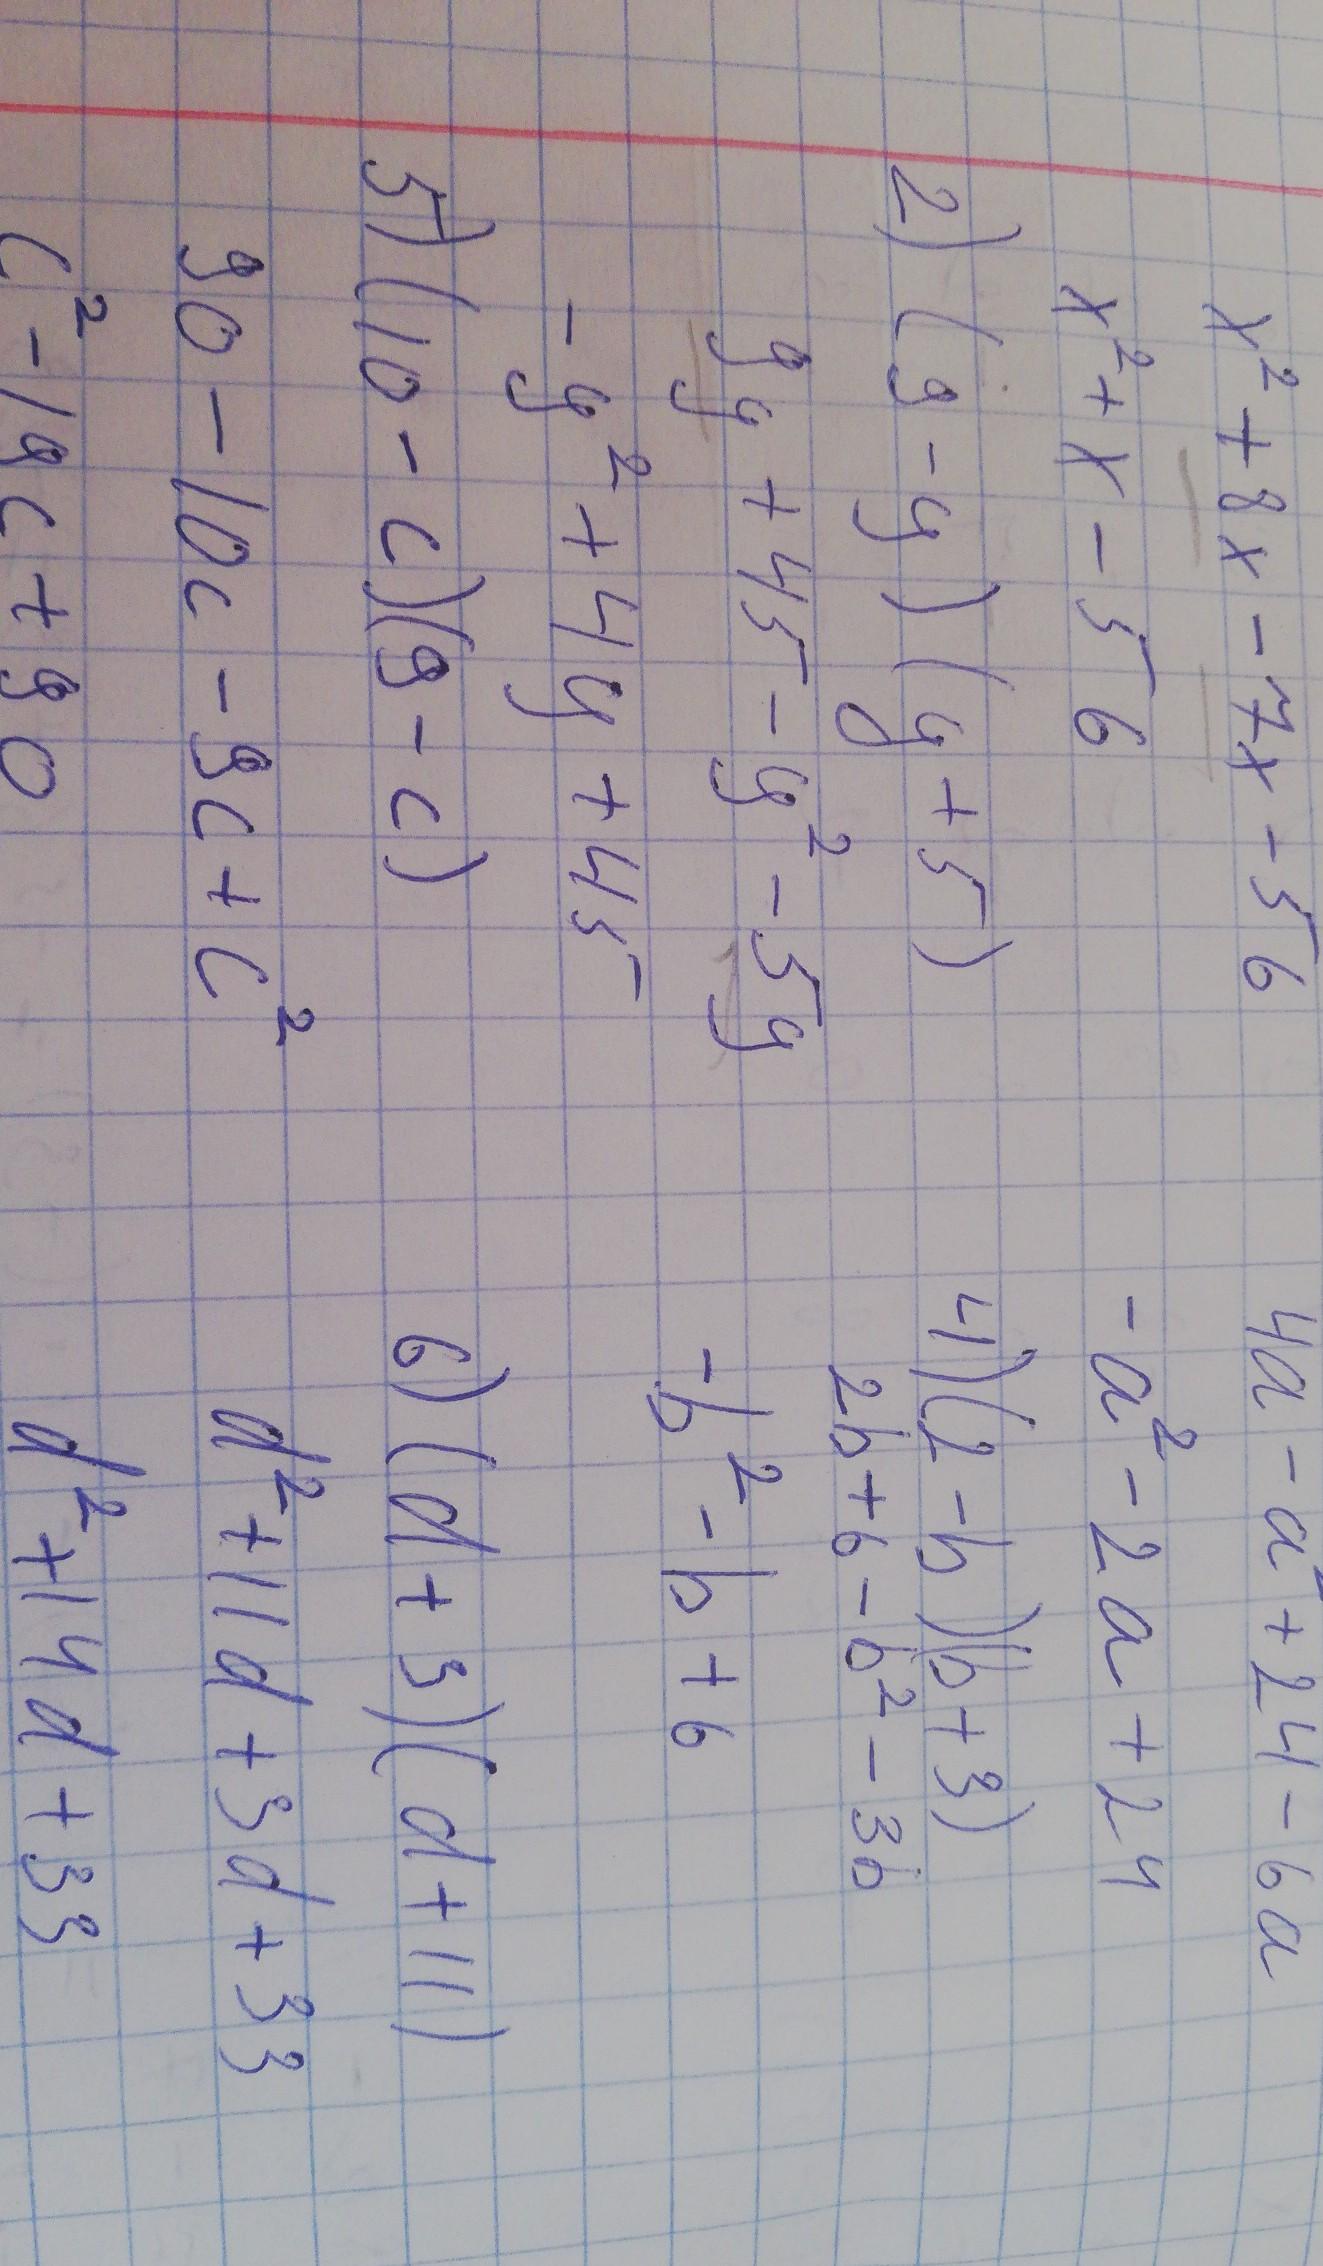 x²+8x-7x-56
x²+x-56
2) (9-y)(y+5)
9y+45-y²-5y
-y²+4y+45
5) (10-c)(9-c)
90-10c-9c+c²
c²-19c+90
4a-a²+24-6a
-a²-2a+24
4) (2-b)(b+3)
2b+6-b²-3b
-b²-b+6
6) (d+3)(d+11)
d²+11d+3d+33
d²+14d+33